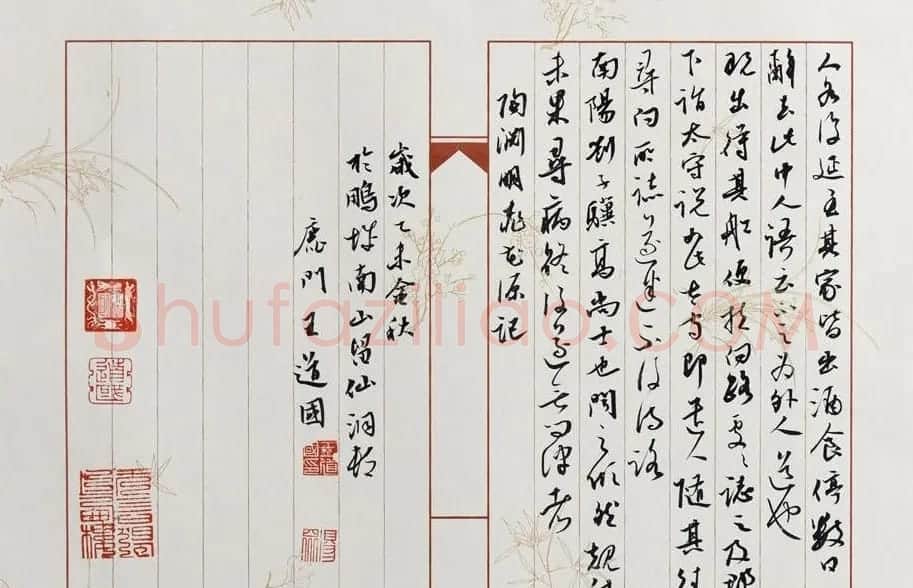 人各復延至其家皆出酒食停數日
辭去此中人語云不足為外人道也
既出得其船便扶向路處々誌之及郡
下詣太守說如此太守即遣人隨其往
尋向所誌遂迷不復得路
南陽劉子驥高尚士也聞之欣然規往
未果尋病終後遂無問津者
陶淵明桃花源記
歲次乙未金秋
於鵬城南山留仙洞邨
鹿門王道國
道國
shufaziliao.COM